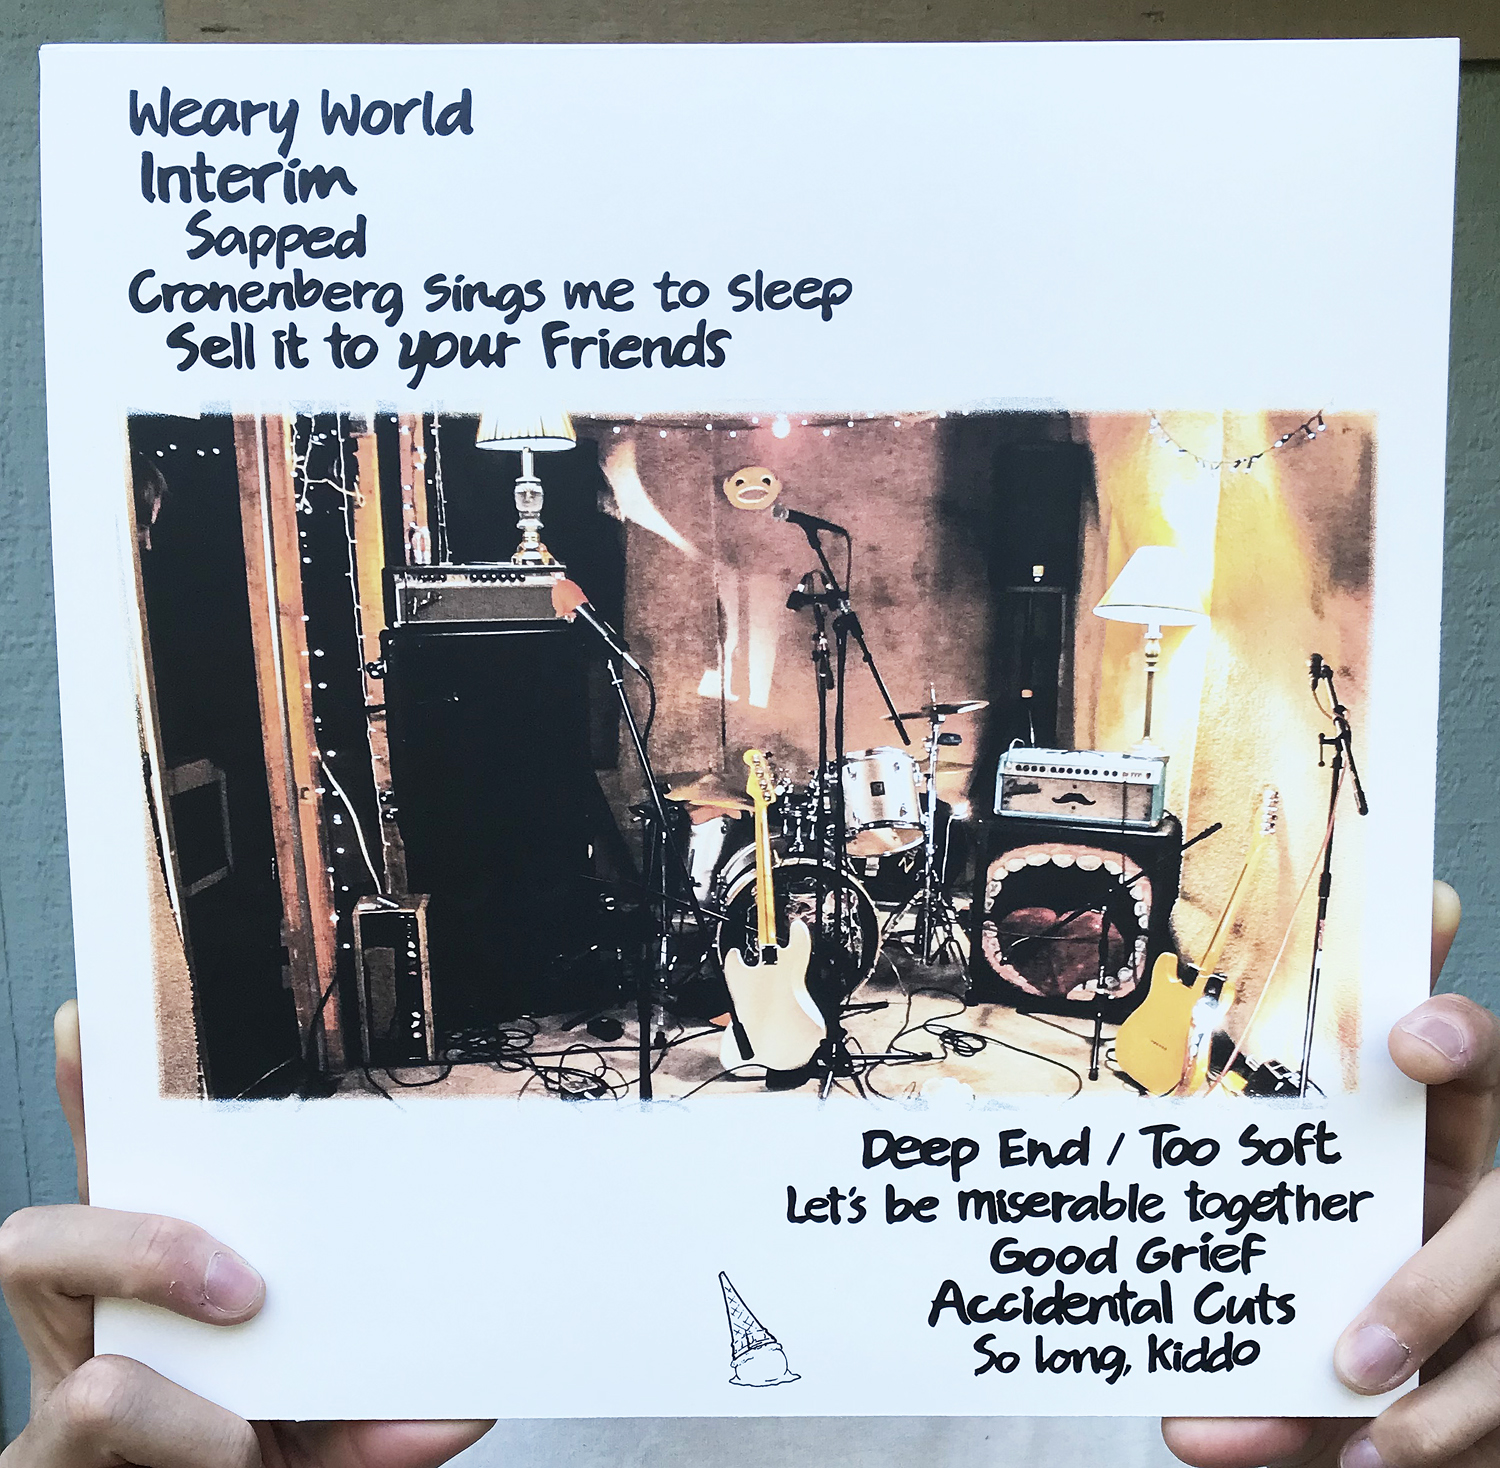 Weary World
Interim
Sapped
Cronenberg Sings me to Sleep
Sell it to your Friends
Deep End / Too Soft
Let's be miserable together
Good Grief
Accidental Cuts
So long, Kiddo